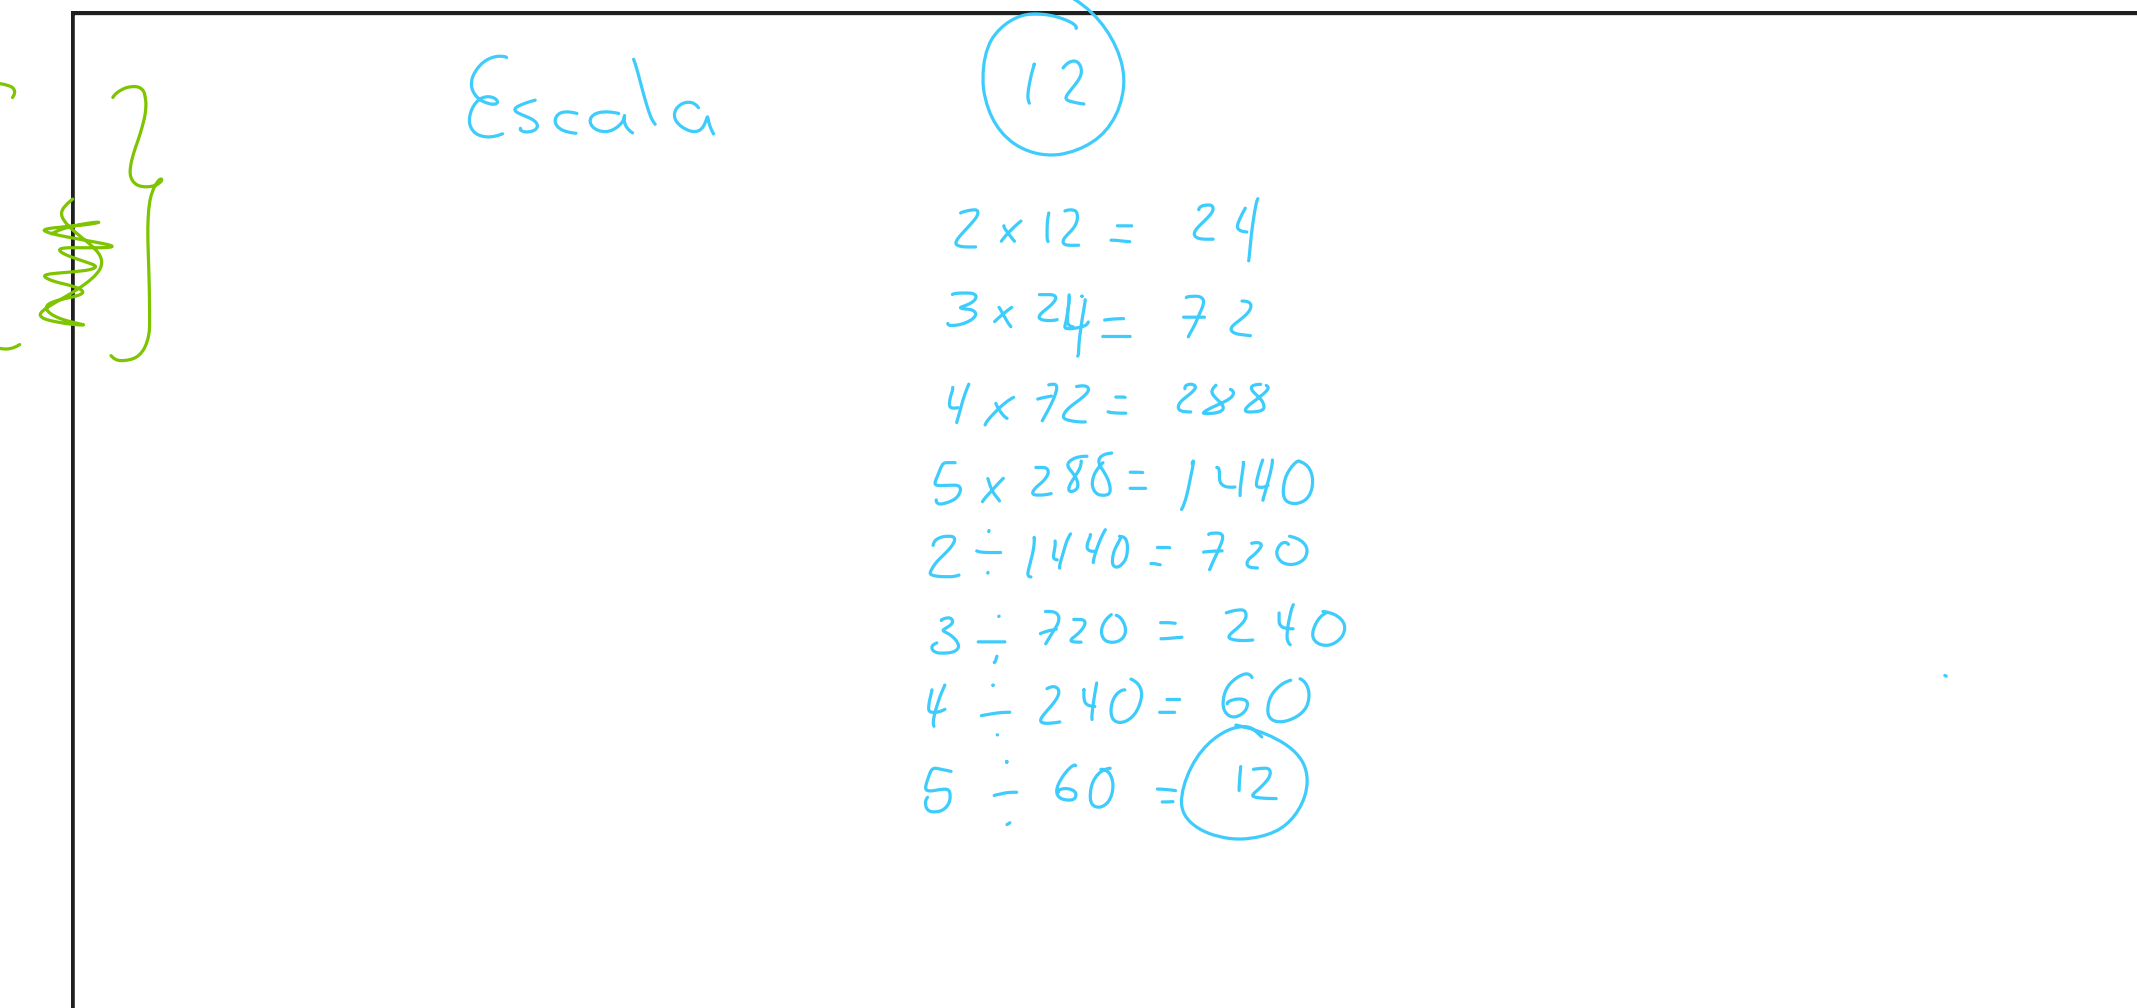 Escala 12
2 x 12 = 24
3 x 24 = 72
4 x 72 = 288
5 x 288 = 1440
2 ÷ 1440 = 720
3 ÷ 720 = 240
4 ÷ 240 = 60
5 ÷ 60 = 12